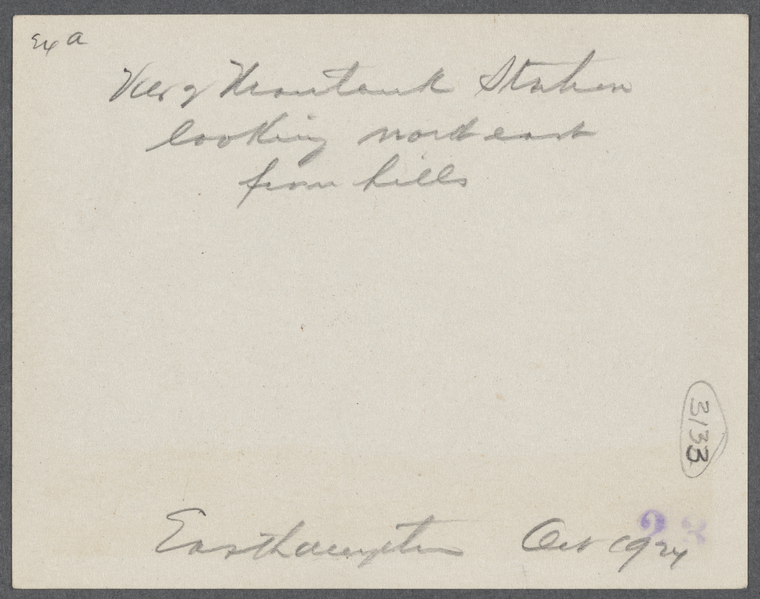 Ex a
View of Montauk Station
looking northeast
from hills
3133
Easthampton Oct 1924